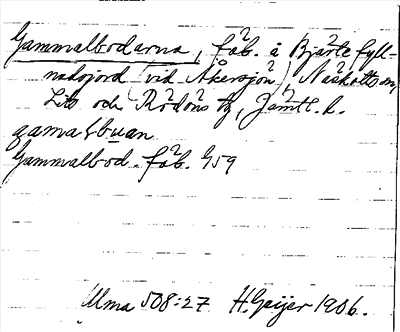 Gammalbodarna, fäb. å Bjärte fyll-
nadsjord (vid Åkersjön), Näskotts sn,
Lits och Rödöns tg, Jämtl. l.
gamaʃbuan
Gammalbod. fäb. G59
Ulma 508:27 H. Geijer 1906.